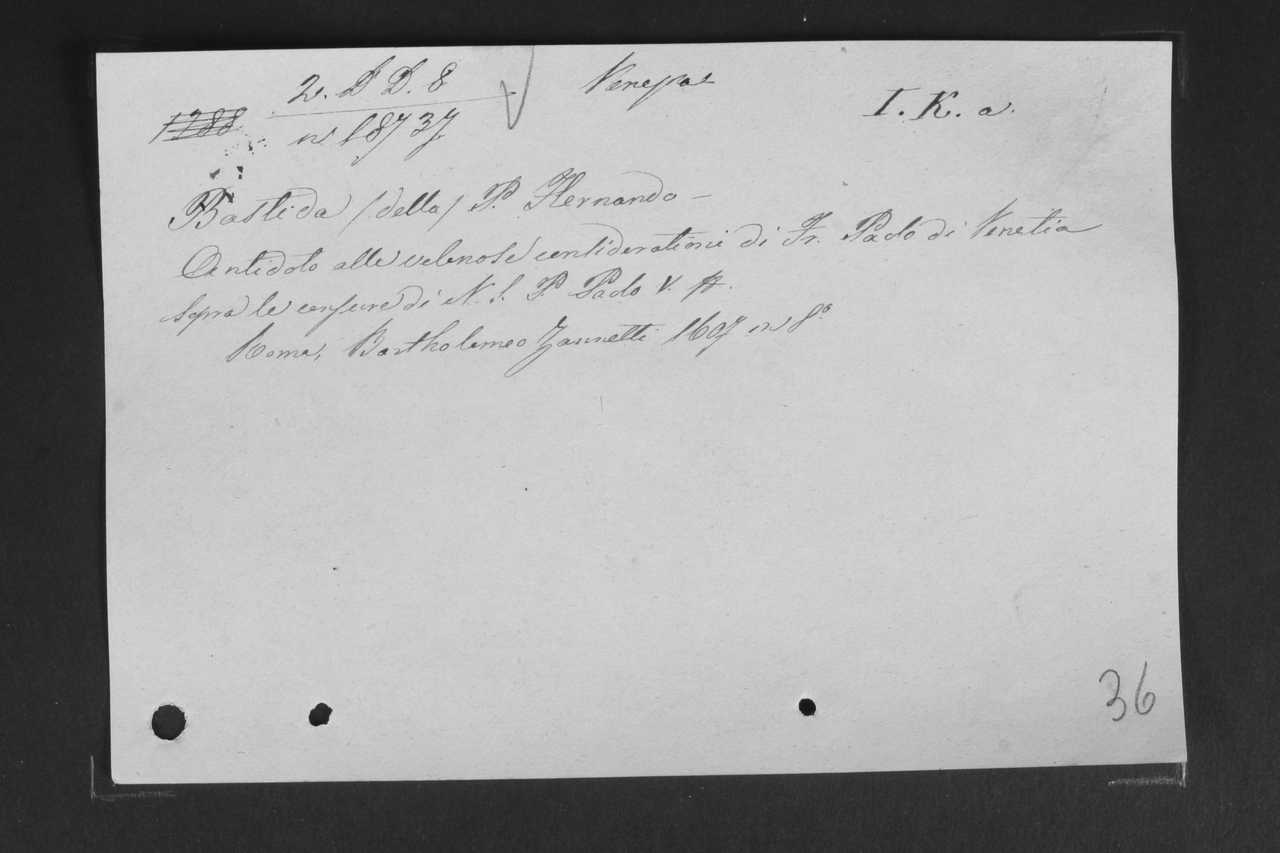 2. D D. 8
Venezia
I. K. a.
1288
n 18737
Bastida (della) P. Hernando –
Antidoto alle velenose considerationi di Fr. Paolo di Venetia
sopra le censure di N. S. P. Paolo V.
Roma, Bartholomeo Zannetti 1607 in 8º
36